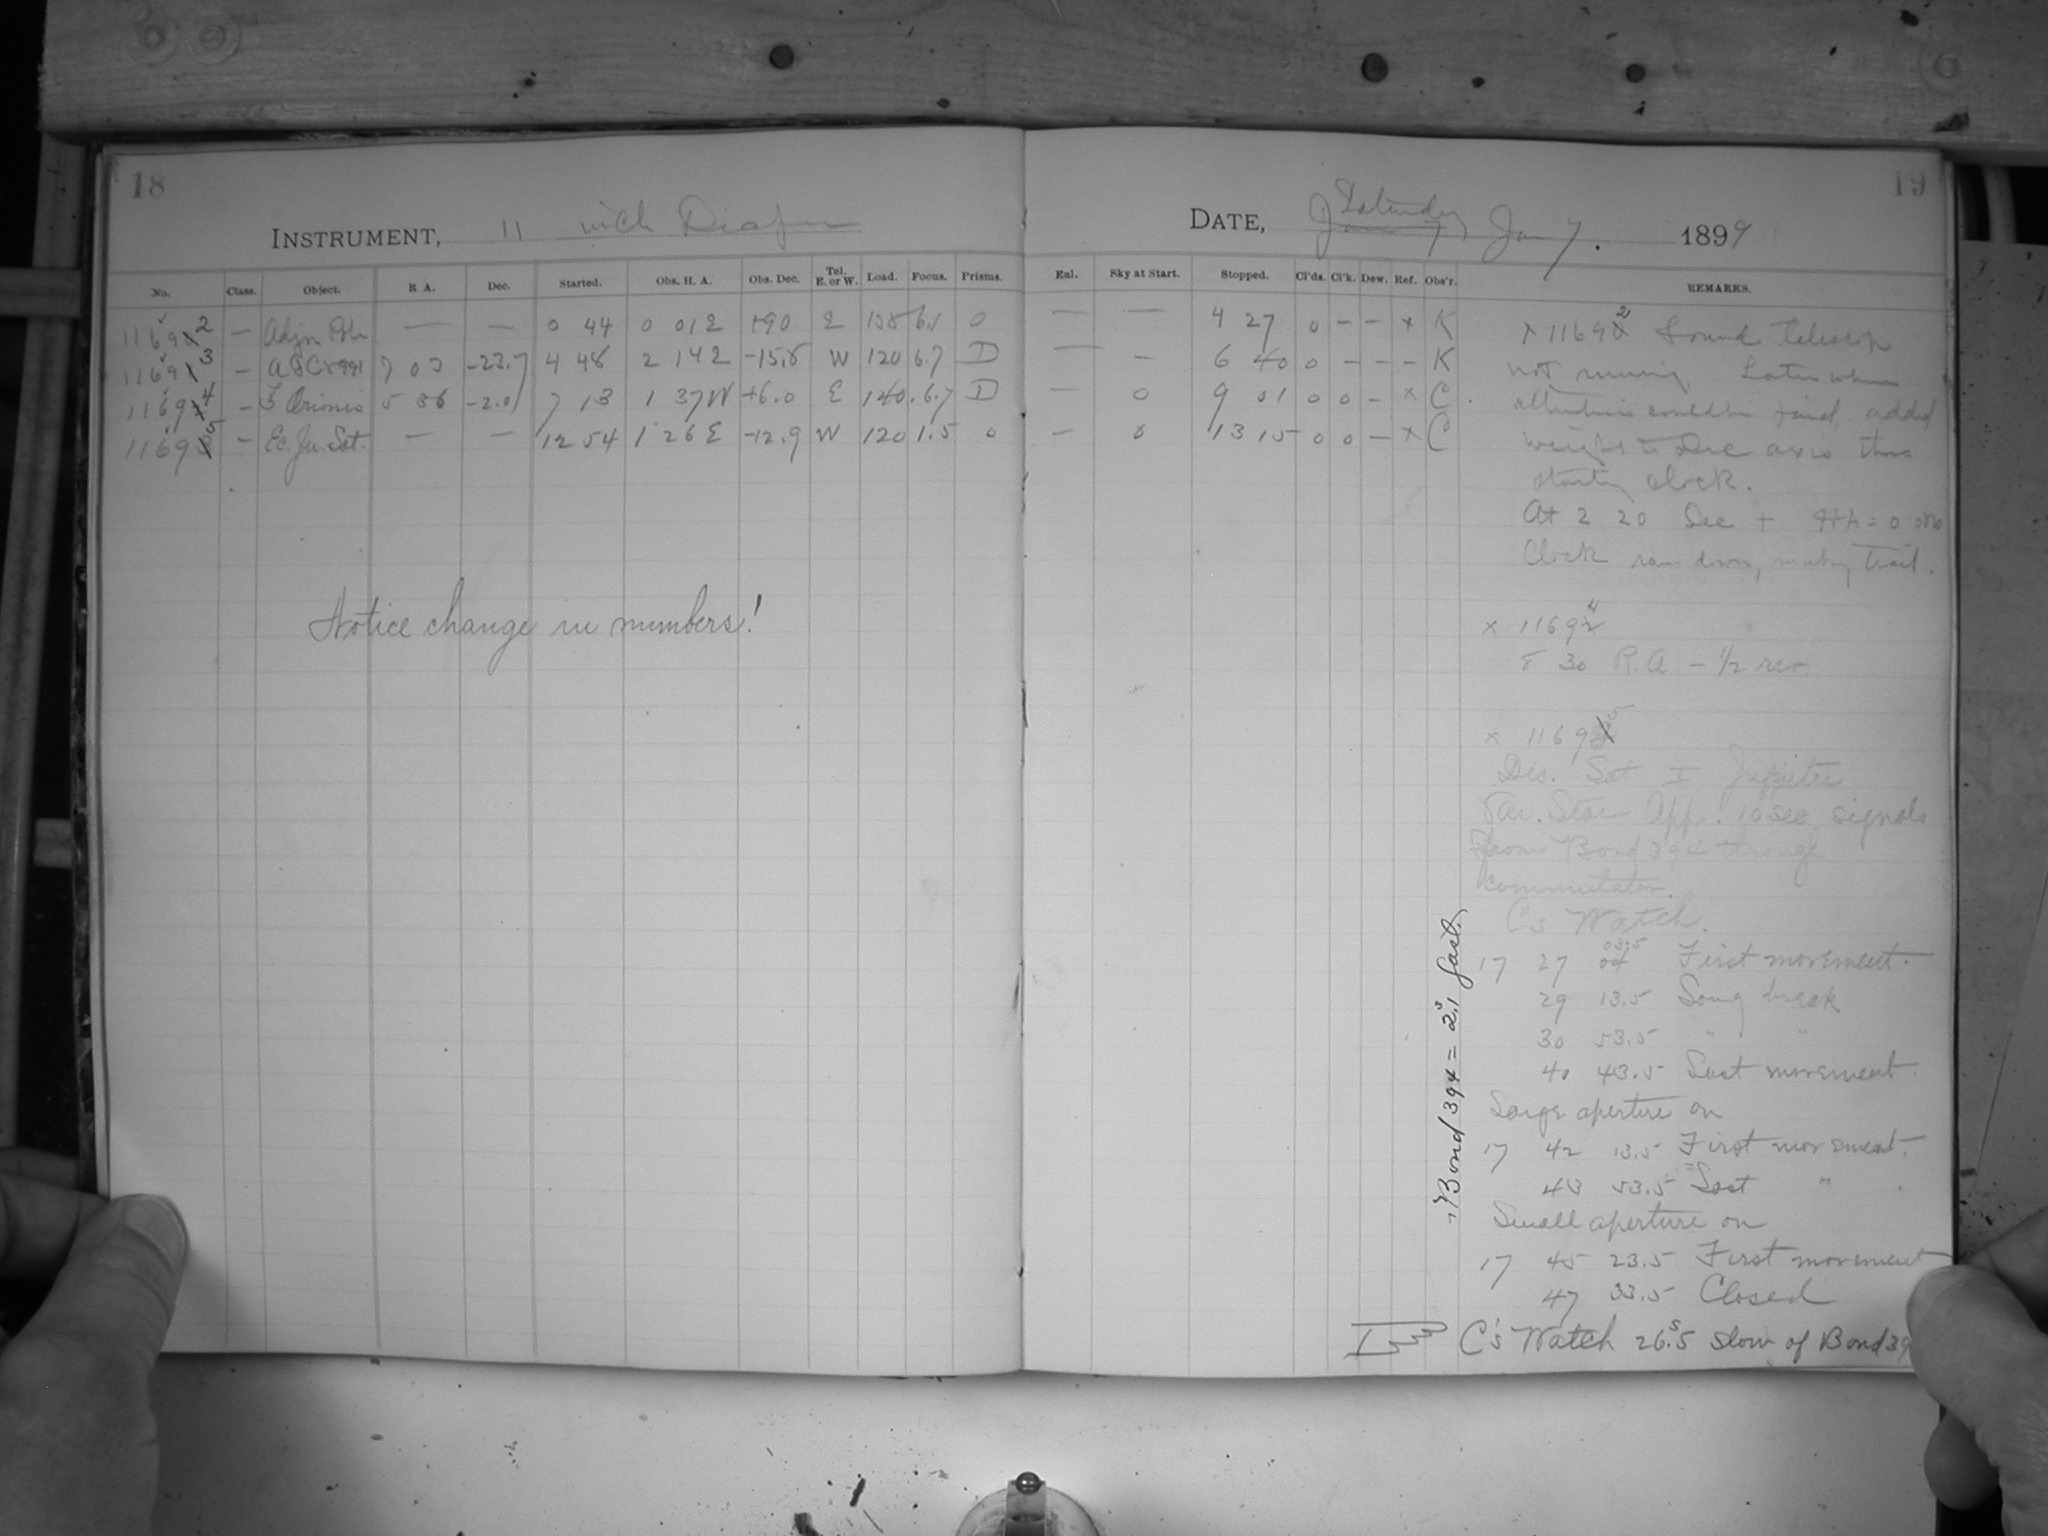 18
19
INSTRUMENT, 11 inch Draper
DATE, Saturday Jan 7. 1899
No. Class. Object. R A. Dec. Started. Obs. H. A. Obs. Dec. Tel. E. or W. Load. Focus. Prisms. Enl. Sky at Start. Stopped. Cl'ds. Cl'k. Dew. Ref. Obs'r. REMARKS.
11692 — Adjn Pole — — 0 44 0 01 E +90 E 6.1 0 — — 4 27 0 — — x K
11693 — -23.7 4 48 2 14 E W 120 6.7 D — — 6 40 0 — — — K
11694 — Orionis 5 36 -2.0 7 13 1 37 W +6.0 E 140 6.7 D — 0 9 01 0 0 — x C
11695 — Ec. Ju. Sat. — — 12 54 1 26 E -12.9 W 120 1.5 0 — 0 13 15 0 0 — x C
Notice change in numbers!
x 11692 Found telescope
not running. Later when
attendance could be found, added
weight to Dec axis thus
starting clock.
At 2 20 Dec + HA = 0
Clock ran down, making trail.
x 11694
8 30 R.A — 1/2 rev.
x 11695
Dis. Sat I Jupiter
Var. Star App. 10 sec signals
from Bond 394 through
commutator.
C's Watch.
17 27 03.5 First movement.
29 13.5 Long break
30 53.5 " "
40 43.5 Last movement.
Large aperture on
17 42 13.5 First movement.
43 53.5 Last "
Small aperture on
17 45 23.5 First movement
47 33.5 Closed
C's Watch 26.s5 slow of Bond 39
Bond 394 = 2.s1 fast.